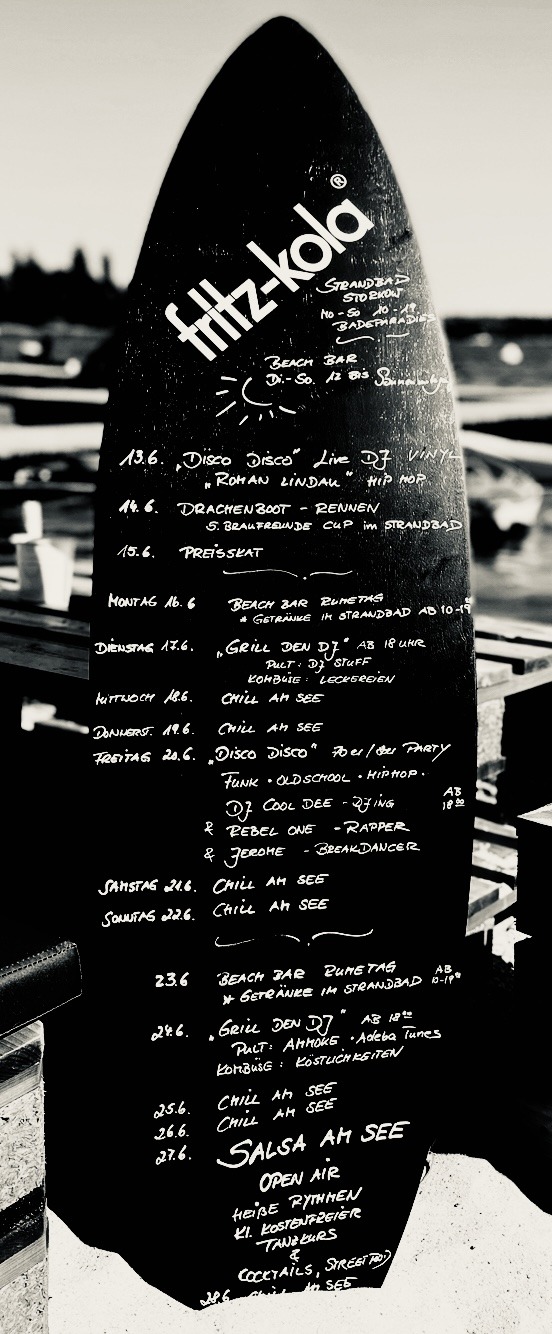 fritz-kola®
STRANDBAD
STORKOW
MO - SO 10 - 19
BADEPARADIES
BEACH BAR
Di.- SO. 12 BIS
13.6. „Disco Disco“ Live DJ VINYL
„ROMAN LINDAU“ HIP HOP
14.6. DRACHENBOOT - RENNEN
5. BRAUFREUNDE CUP im STRANDBAD
15.6. PREISSKAT
MONTAG 16.6 BEACH BAR RUHETAG
* GETRÄNKE IM STRANDBAD AB 10-19°°
DIENSTAG 17.6. „GRILL DEN DJ“ AB 18 UHR
PULT: DJ STUFF
KOMBÜSE: LECKEREIEN
MITTWOCH 18.6. CHILL AM SEE
DONNERST. 19.6. CHILL AM SEE
FREITAG 20.6. „DISCO DISCO“ 70er/80er PARTY
FUNK • OLDSCHOOL • HIPHOP •
DJ COOL DEE - DJing AB 18°°
& REBEL ONE - RAPPER
& JEROME - BREAKDANCER
SAMSTAG 21.6. CHILL AM SEE
SONNTAG 22.6. CHILL AM SEE
23.6 BEACH BAR RUHETAG
* GETRÄNKE IM STRANDBAD AB 10-19°°
24.6. „GRILL DEN DJ“ AB 18°°
PULT: AMMOKE • Adeba Tunes
KOMBÜSE: KÖSTLICHKEITEN
25.6. CHILL AM SEE
26.6. CHILL AM SEE
27.6. SALSA AM SEE
OPEN AIR
HEIßE RYTHMEN
KL. KOSTENFREIER
TANZKURS
&
COCKTAILS, STREETFOOD
28.6 CHILL AM SEE